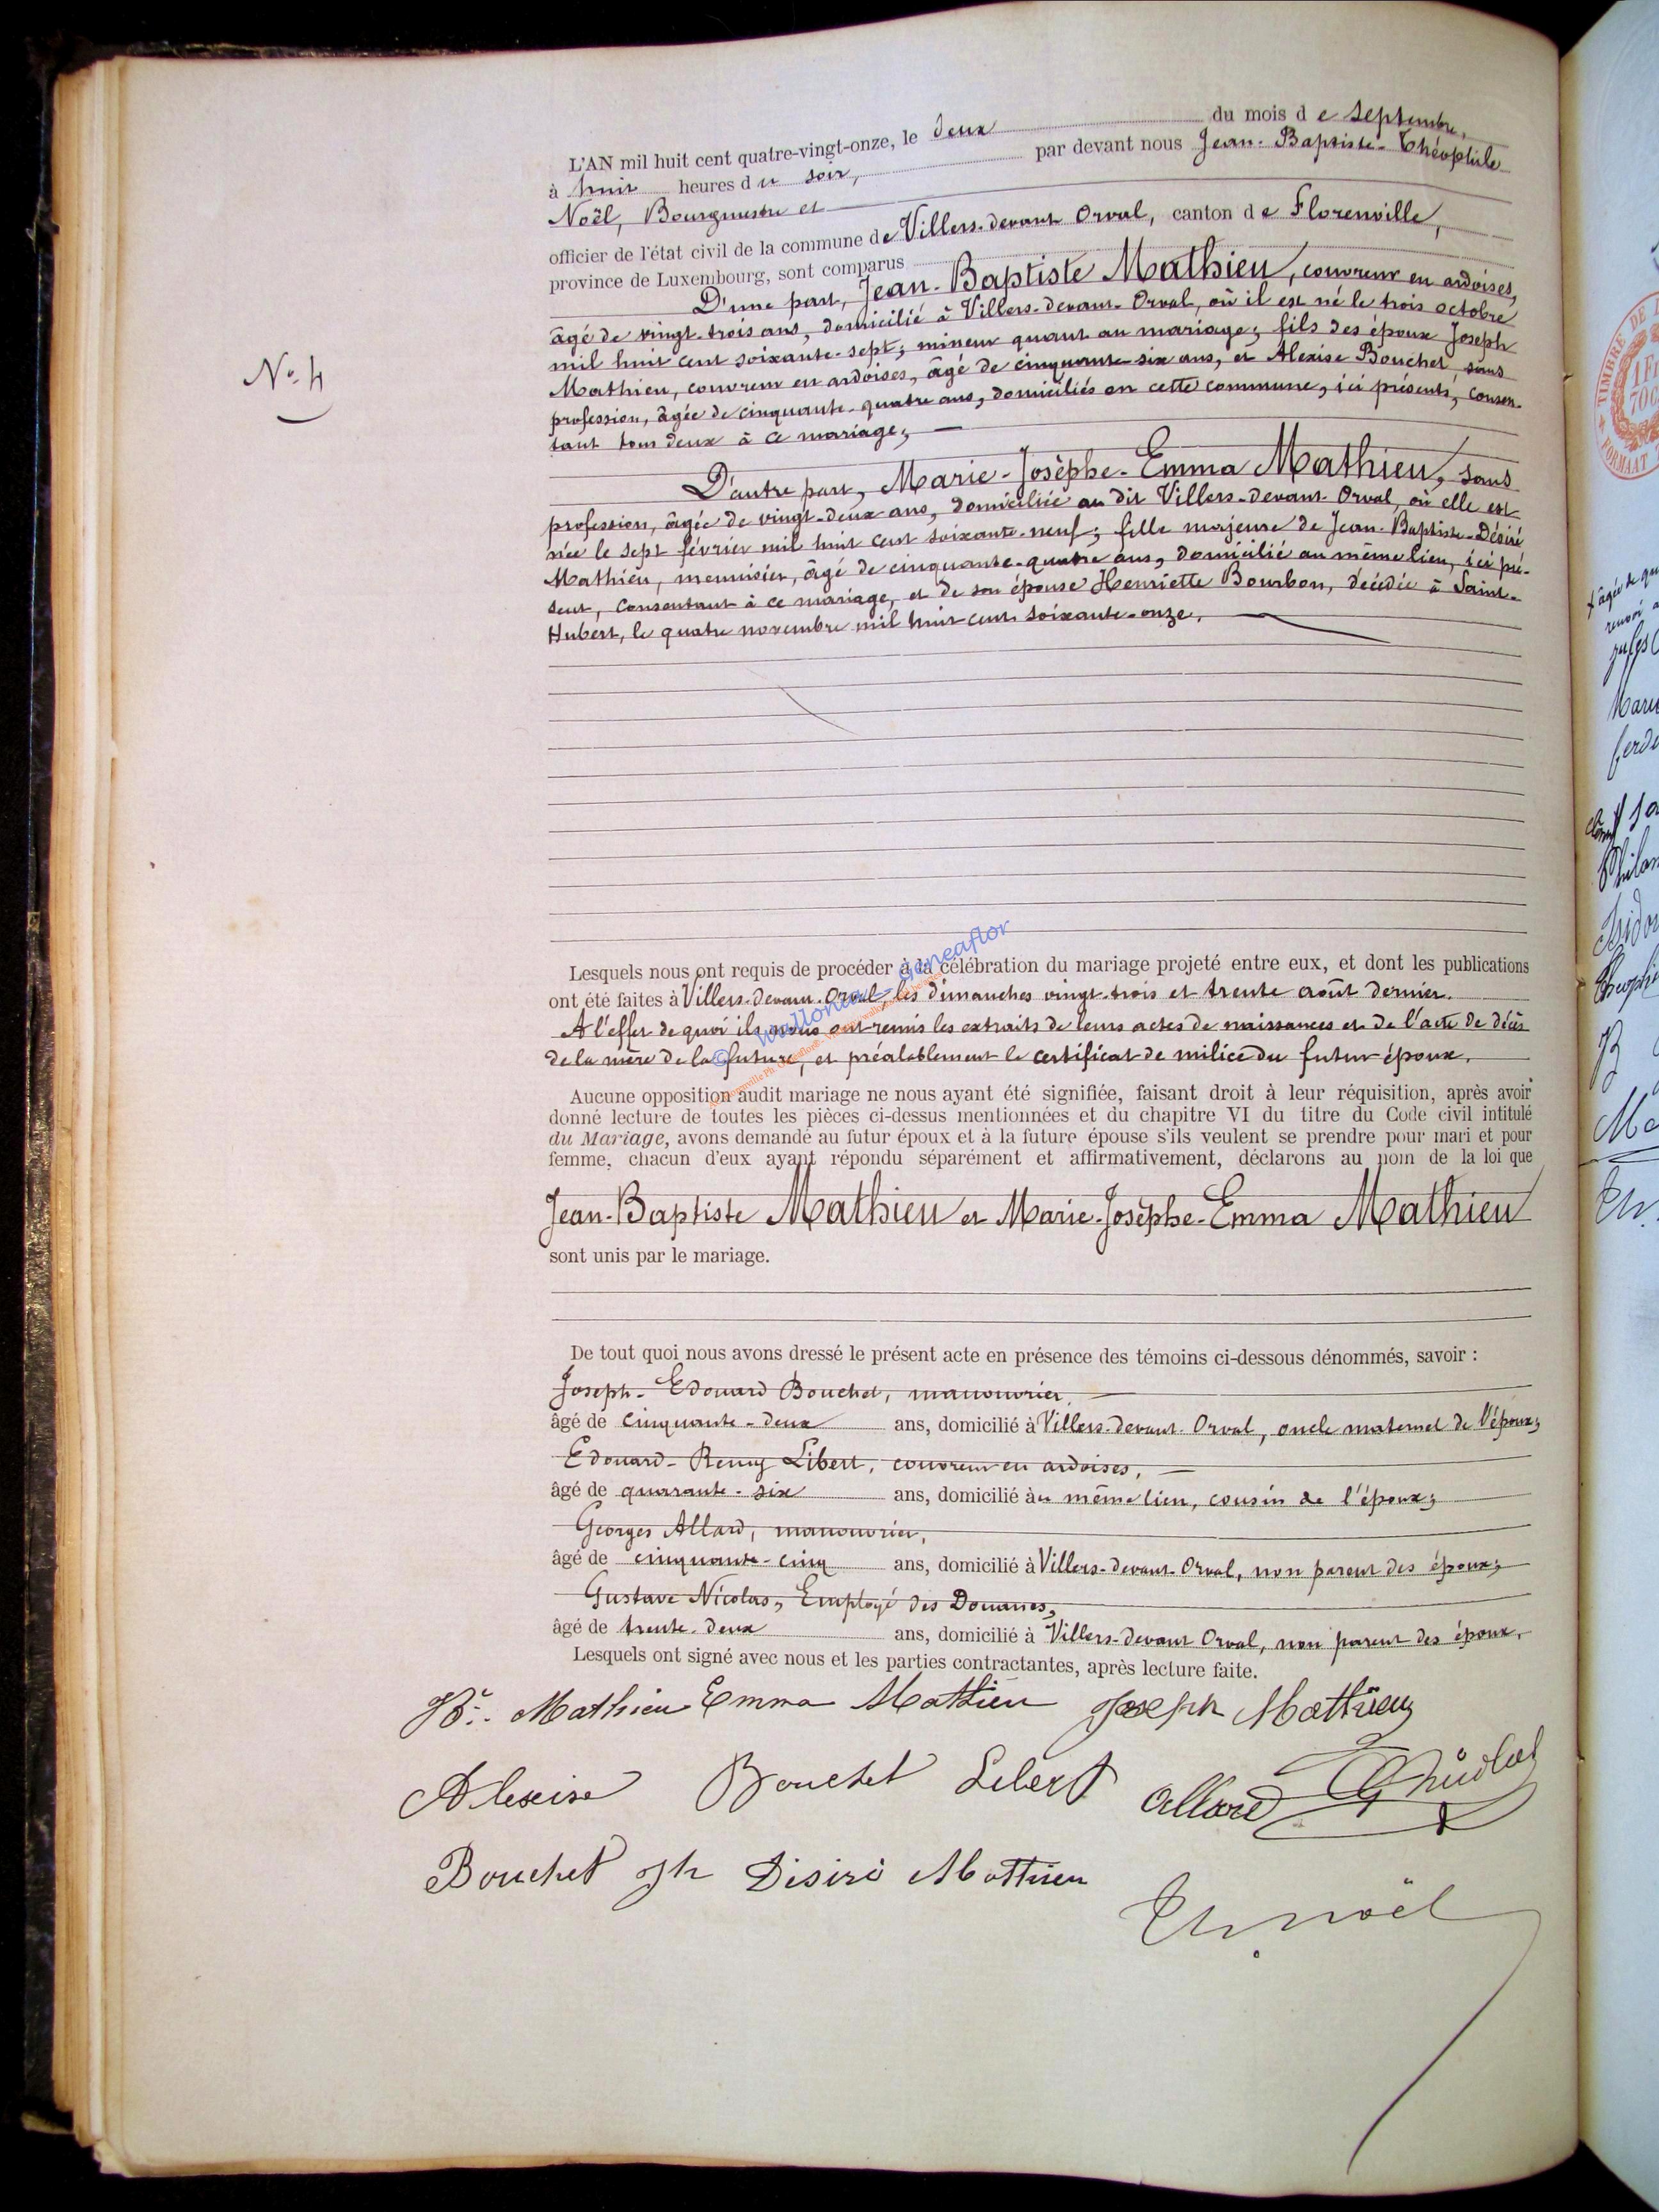 N° 4
L'AN mil huit cent quatre-vingt-onze, le deux du mois de Septembre,
à huit heures du soir, par devant nous Jean-Baptiste-Théophile
Noël, Bourgmestre et
officier de l'état civil de la commune de Villers-devant-Orval, canton de Florenville,
province de Luxembourg, sont comparus
D'une part, Jean-Baptiste Mathieu, couvreur en ardoises,
âgé de vingt-trois ans, domicilié à Villers-devant-Orval, où il est né le trois octobre
mil huit cent soixante-sept; mineur quant au mariage; fils des époux Joseph
Mathieu, couvreur en ardoises, âgé de cinquante-six ans, et Alexise Bouchet, sans
profession, âgée de cinquante-quatre ans, domiciliés en cette commune, ici présents, consen-
tant tous deux à ce mariage;
D'autre part, Marie-Josèphe-Emma Mathieu, sans
profession, âgée de vingt-deux ans, domiciliée au dit Villers-devant-Orval, où elle est
née le sept février mil huit cent soixante-neuf; fille majeure de Jean-Baptiste-Désiré
Mathieu, menuisier, âgé de cinquante-quatre ans, domicilié au même lieu, ici pré-
sent, consentant à ce mariage, et de son épouse Henriette Bourbon, décédée à Saint-
Hubert, le quatre novembre mil huit cent soixante-onze.
Lesquels nous ont requis de procéder à la célébration du mariage projeté entre eux, et dont les publications
ont été faites à Villers-devant-Orval, les dimanches vingt-trois et trente août dernier.
A l'effet de quoi ils nous ont remis les extraits de leurs actes de naissances et de l'acte de décès
de la mère de la future, et préalablement le certificat de milice du futur époux.
© Wallonica - Geneaflor
Aucune opposition audit mariage ne nous ayant été signifiée, faisant droit à leur réquisition, après avoir
donné lecture de toutes les pièces ci-dessus mentionnées et du chapitre VI du titre du Code civil intitulé
du Mariage, avons demandé au futur époux et à la future épouse s'ils veulent se prendre pour mari et pour
femme, chacun d'eux ayant répondu séparément et affirmativement, déclarons au nom de la loi que
Jean-Baptiste Mathieu et Marie-Josèphe-Emma Mathieu
sont unis par le mariage.
De tout quoi nous avons dressé le présent acte en présence des témoins ci-dessous dénommés, savoir :
Joseph-Edouard Bouchet, manouvrier,
âgé de cinquante-deux ans, domicilié à Villers-devant-Orval, oncle maternel de l'époux;
Edouard-Remy Libert, couvreur en ardoises,
âgé de quarante-six ans, domicilié au même lieu, cousin de l'époux;
Georges Allard, manouvrier,
âgé de cinquante-cinq ans, domicilié à Villers-devant-Orval, non parent des époux;
Gustave Nicolas, Employé des Douanes,
âgé de trente-deux ans, domicilié à Villers-devant Orval, non parent des époux.
Lesquels ont signé avec nous et les parties contractantes, après lecture faite.
Mathieu Emma Mathieu Joseph Mathieu
Alexise Bouchet Libert Allard
Bouchet Jh Désiré Mathieu
Th. Noël